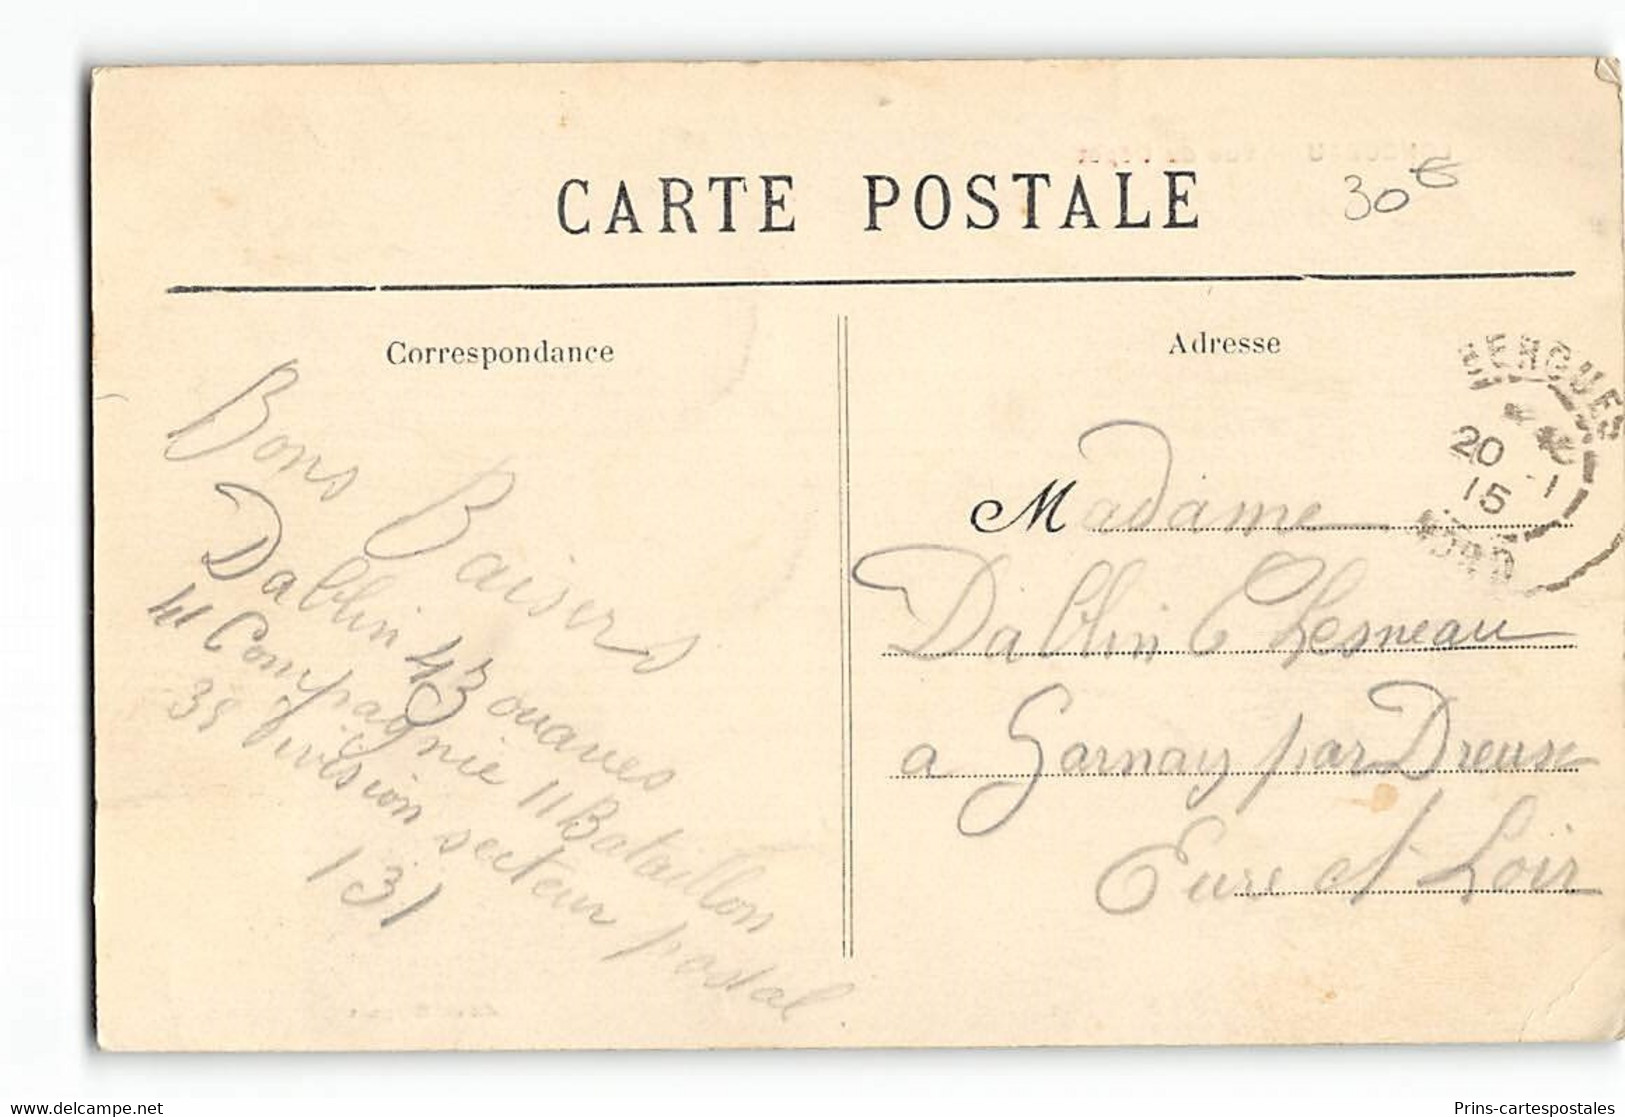 CARTE POSTALE
30€
Correspondance
Bons Baisers
Dablin 43 ouaves
41 Compagnie 11 Bataillon
38 Division secteur postal
131
Adresse
Madame
Dablin Chesneau
a Garnay par Dreuse
Eure et Loir
BERGUES
20 -1
15
NORD
delcampe.net
Prins-cartespostales